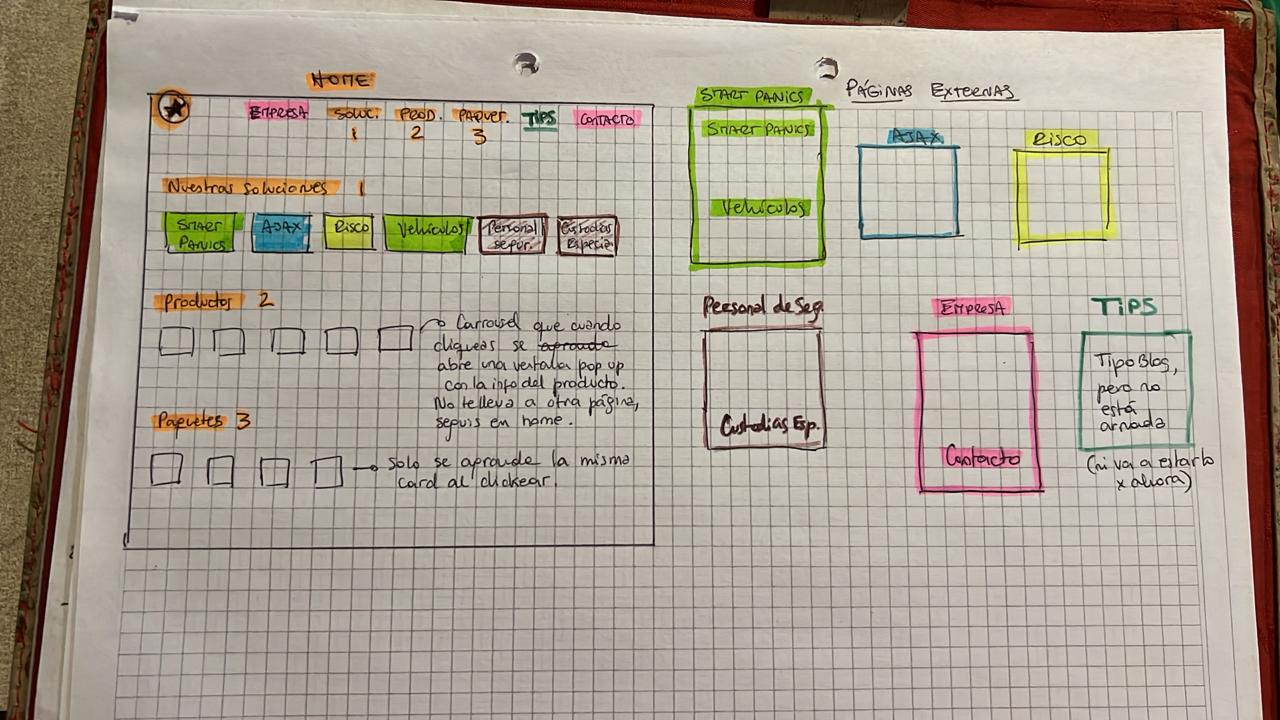 HOME
EMPRESA SOLUC. PROD. PAQUET. TIPS CONTACTO
1 2 3
Nuestras soluciones 1
START PANICS
AJAX
RISCO
Vehículos
Personal segur.
Custodias Especia.
Productos 2
Carrousel que cuando
cliqueas se aprouda
abre una ventalla pop up
con la info del producto.
No te lleva a otra página,
seguis en home.
Paquetes 3
Solo se aprouda la misma
card al clickear.
PÁGINAS EXTERNAS
START PANICS
START PANICS
Vehículos
AJAX
RISCO
Personal de Seg.
Custodias Esp.
EMPRESA
Contacto
TIPS
Tipo Blog,
pero no
está
armada
(ni va a estarlo
x ahora)